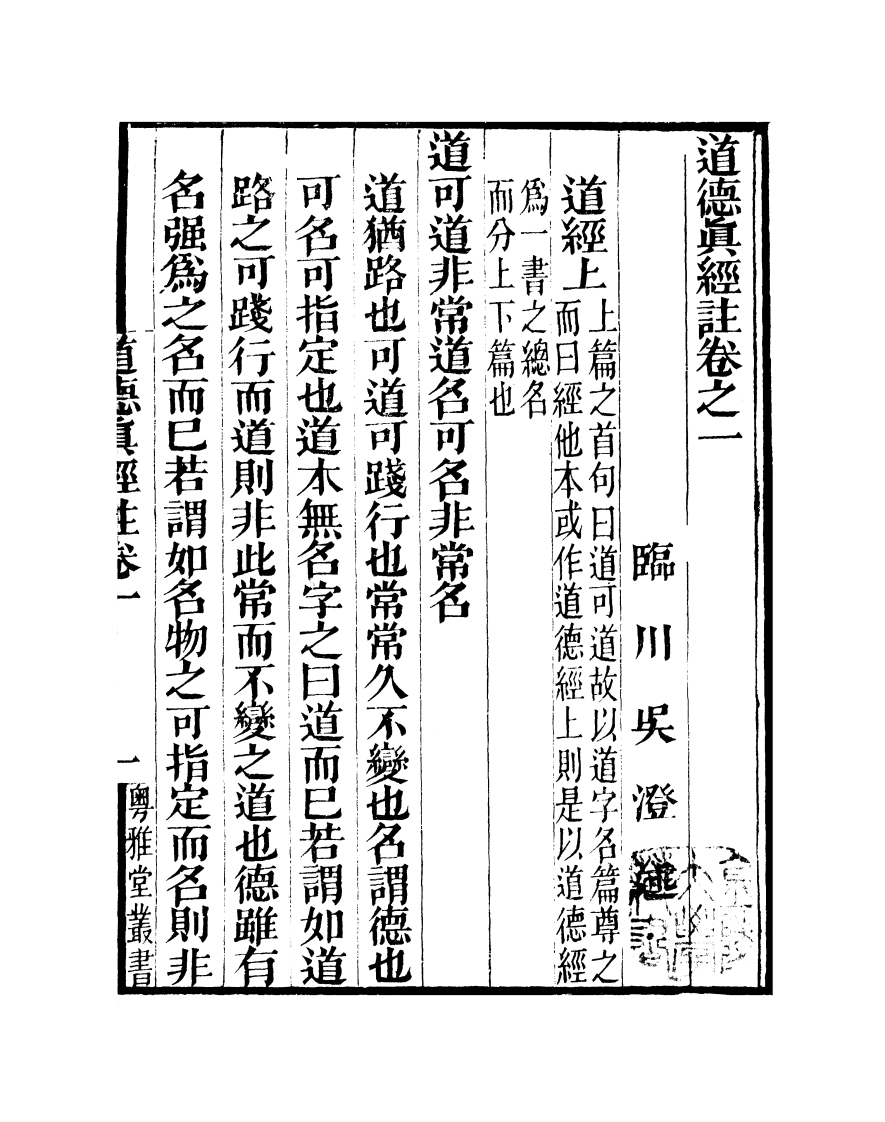 道德眞經註卷之一
臨川吳澄述
道經上
上篇之首句曰道可道故以道字名篇尊之
而曰經他本或作道德經上則是以道德經
爲一書之總名
而分上下篇也
道可道非常道名可名非常名
道猶路也可道可踐行也常常久不變也名謂德也
可名可指定也道本無名字之曰道而已若謂如道
路之可踐行而道則非此常而不變之道也德雖有
名强爲之名而已若謂如名物之可指定而名則非
道德眞經註卷一
一
粵雅堂叢書